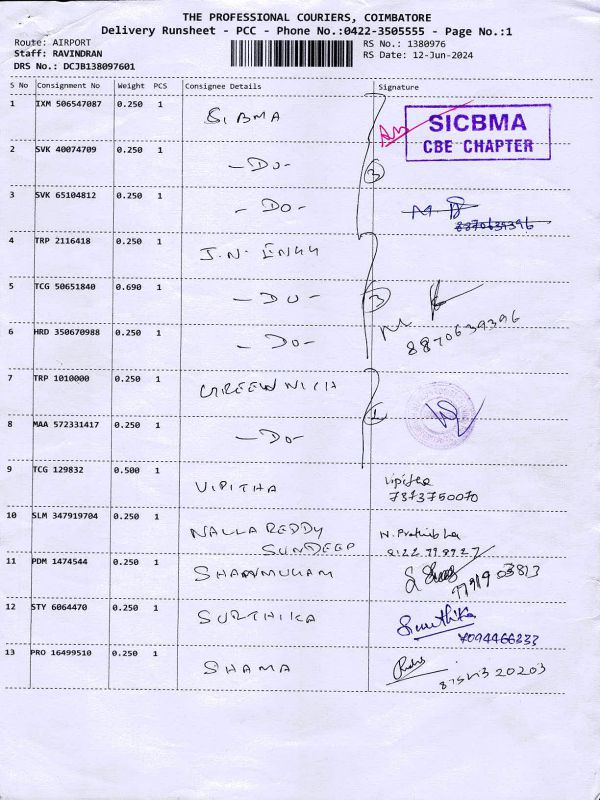 THE PROFESSIONAL COURIERS, COIMBATORE
Delivery Runsheet - PCC - Phone No.:0422-3505555 - Page No.:1
Route: AIRPORT
Staff: RAVINDRAN
DRS No.: DCJB138097601
RS No.: 1380976
RS Date: 12-Jun-2024
S No Consignment No Weight PCS Consignee Details Signature
1 IXM 506547087 0.250 1 SIBMA
SICBMA
CBE CHAPTER
2 SVK 40074709 0.250 1 -DO- 3
3 SVK 65104812 0.250 1 -DO-
8870639396
4 TRP 2116418 0.250 1 J.N. ENGG
5 TCG 50651840 0.690 1 -DO- 3
8870639396
6 HRD 350670988 0.250 1 -DO-
7 TRP 1010000 0.250 1 GREENWICH
8 MAA 572331417 0.250 1 -DO-
9 TCG 129832 0.500 1 VIPITHA
7373750070
10 SLM 347919704 0.250 1 NALLA REDDY
SUNDEEP
11 PDM 1474544 0.250 1 SHANMUGAM
12 STY 6064470 0.250 1 SURTHIKA Surthika
13 PRO 16499510 0.250 1 SHAMA